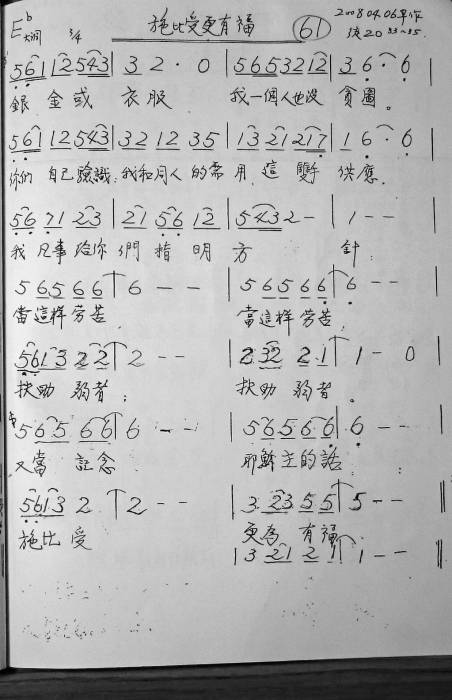 E♭大调 3/4 施比受更有福 61 2008.04.06早作
徒20 33~35.
5 6 1 1 2 5 4 3 | 3 2 · 0 | 5 6 5 3 2 1 2 | 3 6 · 6
銀 金或 衣服 我一個人也沒 貪圖。
5 6 1 1 2 5 4 3 | 3 2 1 2 3 5 | 1 3 2 1 2 1 7 | 1 6 · 0
你們 自己 我和同人 的需用 這雙 供應.
5 6 7 1 2 3 | 2 1 5 6 1 2 | 5 4 3 2 - | 1 - -
我凡事給你 們指明 方 針:
5 6 5 6 6 | 6 - - | 5 6 5 6 6 | 6 - -
當這样劳苦 當這样劳苦;
5 6 1 3 2 2 | 2 - - | 2 3 2 2 1 | 1 - 0
扶助 弱者; 扶助 弱者。
5 6 5 6 6 | 6 - - | 5 6 5 6 6 | 6 - -
又當 記念 耶穌主的話:
5 6 1 3 2 | 2 - - | 3 2 3 5 5 | 5 - -
施比受 更為 有福
| 3 2 1 2 1 | 1 - - ‖